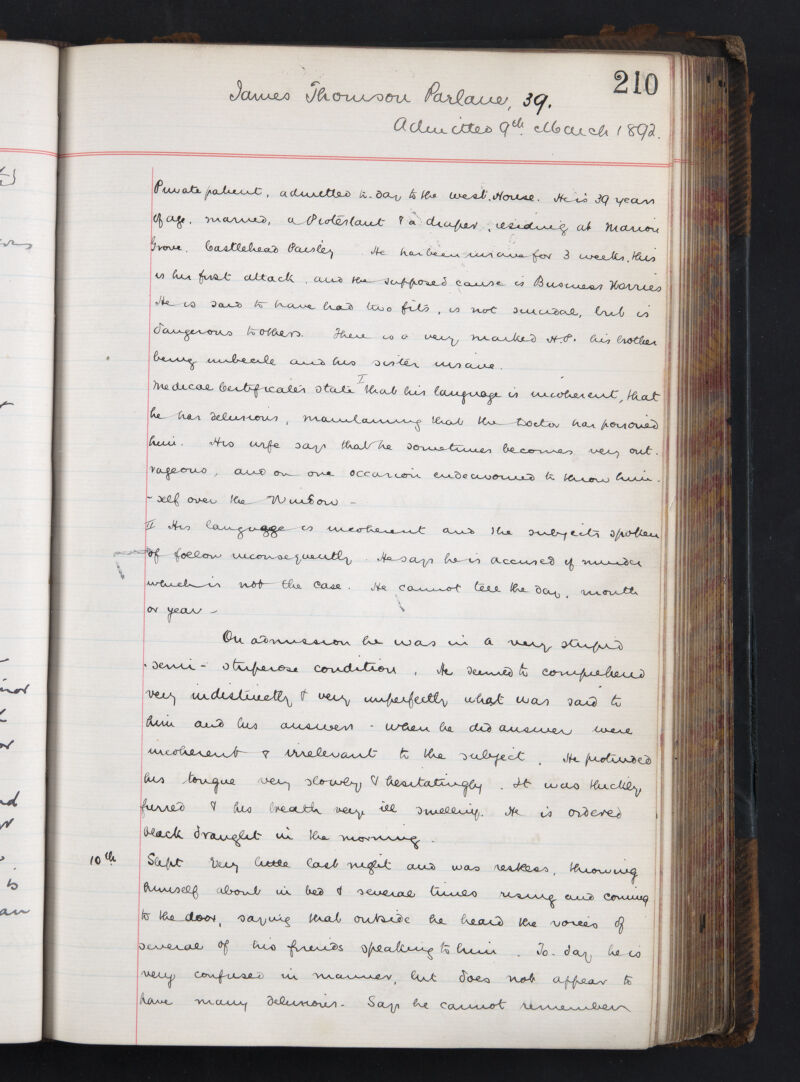 210
James Thomson Parlane, 39.
Admitted 9th March 1892.
Private patient, admitted to-day to the West House. He is 39 years
of age, married, a Protestant & a draper, residing at Marion
Grove, Castlehead Paisley He has been insane for 3 weeks, this
is his first attack, and the supposed cause is Business Worries
He is said to have had two fits, is not suicidal, but is
dangerous to others. There is a very marked H.P. his brother
being imbecile and his sister insane.
Medical Certificates state I that his language is incoherent, that
he has delusions, maintaining that the Doctor has poisoned
him. His wife says that he sometimes becomes very out-
rageous, and on one occasion endeavoured to throw him-
-self over the Window -
II His language is incoherent and the subjects spoken
of follow inconsequently. He says he is accused of murder
which is not the case. He cannot tell the day, month
or year -
On admission he was in a very stupid
-semi-stuperose condition. He seemed to comprehend
very indistinctly & very imperfectly what was said to
him and his answers - when he did answer were
incoherent & irrelevant to the subject. He protruded
his tongue very slowly & hesitatingly. It was thickly
furred & his breath very ill smelling. He is ordered
black draught in the morning.
10th Slept very little last night and was restless, throwing
himself about in bed & several times rising and coming
to the door, saying that outside he heard the voices of
several of his friends speaking to him. To-day he is
very confused in manner, but does not appear to
have many delusions. Says he cannot remember